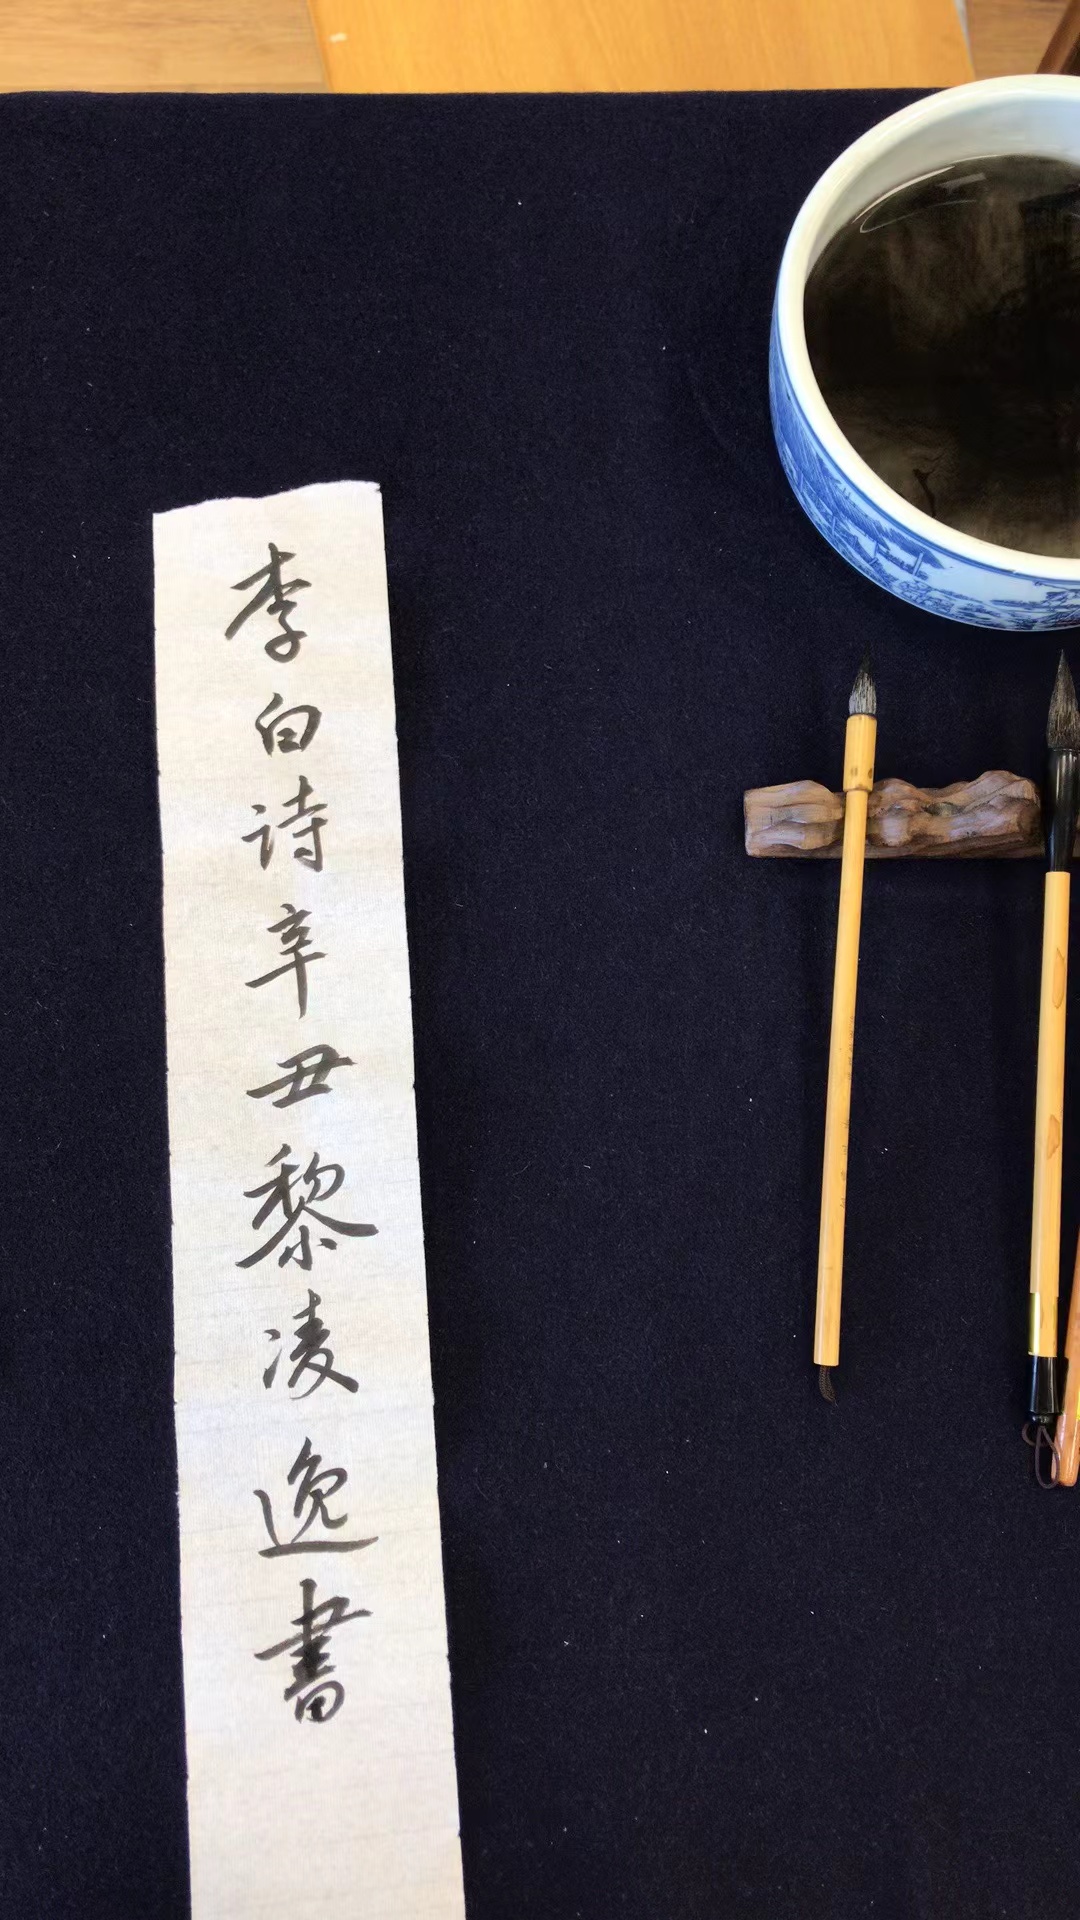 李白诗辛丑黎凌逸書